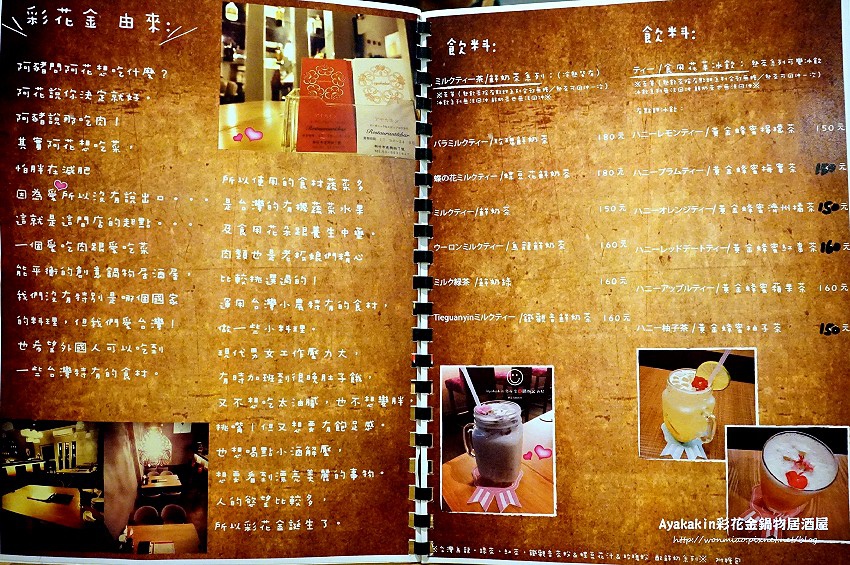 彩花金 由來:
阿豬問阿花想吃什麼?
阿花說你決定就好。
阿豬說那吃肉!
其實阿花想吃菜。
怕胖在減肥
因為愛所以沒有說出口。。。。
這就是這間店的起點。。。。
一個愛吃肉跟愛吃菜
能平衡的創意鍋物居酒屋。
我們沒有特別是哪個國家
的料理,但我們愛台灣!
也希望外國人可以吃到
一些台灣特有的食材。
所以使用的食材蔬菜多
是台灣的有機蔬菜水果
及食用花朵跟養生中藥。
肉類也是老板娘們精心
比較挑選過的!
運用台灣小農特有的食材,
做一些小料理。
現代男女工作壓力大,
有時加班到很晚肚子餓,
又不想吃太油膩,也不想變胖,
挑嘴!但又想要有飽足感。
也想喝點小酒解壓,
想要看到漂亮美麗的事物。
人的慾望比較多,
所以彩花金誕生了。
飲料:
ミルクティー茶/鮮奶茶系列:(冷熱皆有)
バラミルクティー/玫瑰鮮奶茶 180元
蝶の花ミルクティー/蝶豆花鮮奶茶 180元
ミルクティー/鮮奶茶 150元
ウーロンミルクティー/烏龍鮮奶茶 160元
ミルク緑茶/鮮奶綠 160元
Tieguanyinミルクティー/鐵觀音鮮奶茶 160元
飲料:
ティー/食用花草冰飲:熱茶系列可變冰飲
ハニーレモンティー/黃金蜂蜜檸檬茶 150元
ハニープラムティー/黃金蜂蜜梅實茶 150元
ハニーオレンジティー/黃金蜂蜜濃州橘茶 150元
ハニーレッドデートティー/黃金蜂蜜紅棗茶 160元
ハニーアップルティー/黃金蜂蜜蘋果茶 160元
ハニー柚子茶/黃金蜂蜜柚子茶 150元
Ayakakin彩花金鍋物居酒屋
http://wonmiao.pixnet.net/blog